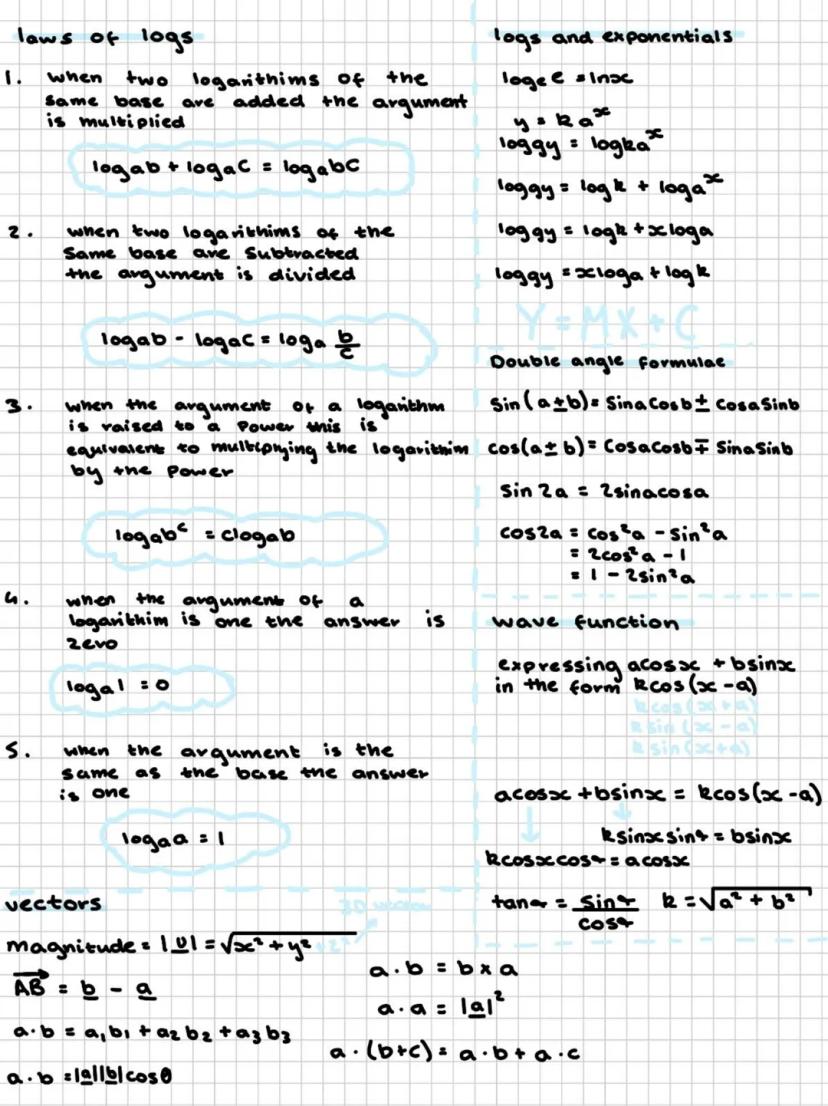 laws of logs
1. when two logarithims of the
same base are added the argument
is multiplied
logab + logac = logabc
2. when two logarithims of the
same base are subtracted
the argument is divided
logab - logac = loga b/c
3. when the argument of a logarithm
is raised to a power this is
equivalent to multiplying the logarithim
by the power
logabᶜ = clogab
4. when the argument of a
logarithim is one the answer is
zero
loga1 = 0
5. when the argument is the
same as the base the answer
is one
logaa = 1
logs and exponentials
logee = lnx
y = kaˣ
loggy = logkaˣ
loggy = logk + logaˣ
loggy = logk + xloga
loggy = xloga + logk
Y = MX + C
Double angle formulae
sin(a±b) = sinacosb ± cosasinb
cos(a±b) = cosacosb ∓ sinasinb
sin2a = 2sinacosa
cos2a = cos²a - sin²a
= 2cos²a - 1
= 1 - 2sin²a
wave function
expressing acosx + bsinx
in the form kcos(x-a)
kcos(x+a)
ksin(x-a)
ksin(x+a)
acosx + bsinx = kcos(x-a)
ksinxsinα = bsinx
kcosxcosα = acosx
tanα = sinα/cosα k = √a² + b²
vectors
3D version
magnitude = |u| = √x² + y² + z²
AB = b - a
a·b = a₁b₁ + a₂b₂ + a₃b₃
a·b = |a||b|cosθ
a·b = b×a
a·a = |a|²
a·(b+c) = a·b + a·c